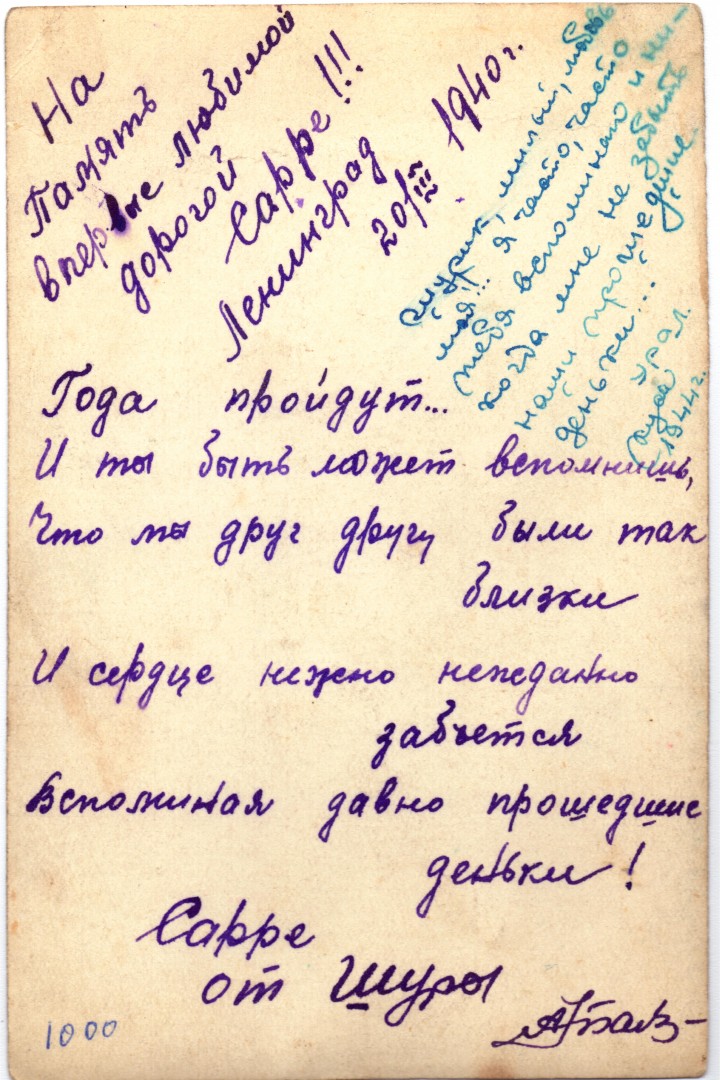 На
Память
впервые любимой
дорогой
Сарре!!!
Ленинград
20/III 1940 г.
Шурик, милый, любовь
моя!!! Я часто, часто
тебя вспоминаю и ни-
когда мне не забыть
наши прошедшие
деньки...
Урал
1944 г.
Года пройдут...
И ты быть может вспомнишь,
Что мы друг другу были так
близки
И сердце нежно нежданно
забъется
Вспоминая давно прошедшие
деньки!
Сарре
от Шуры
1000